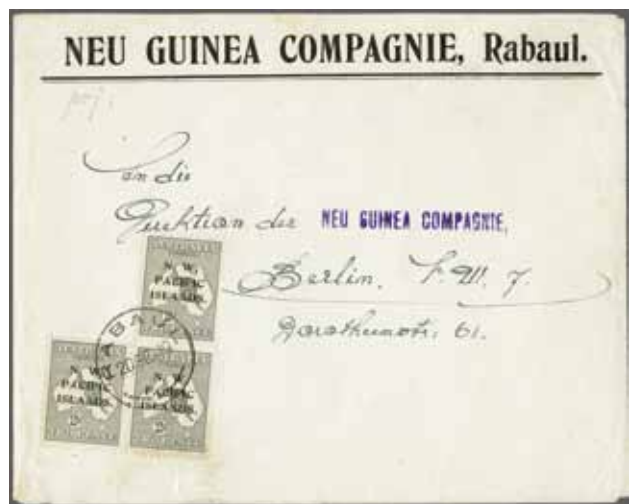 NEU GUINEA COMPAGNIE, Rabaul.
An die
Direktion der NEU GUINEA COMPAGNIE,
Berlin.
61.
N. W.
PACIFIC
ISLANDS.
RABAUL
N. W.
PACIFIC
ISLANDS.
N. W.
PACIFIC
ISLANDS.